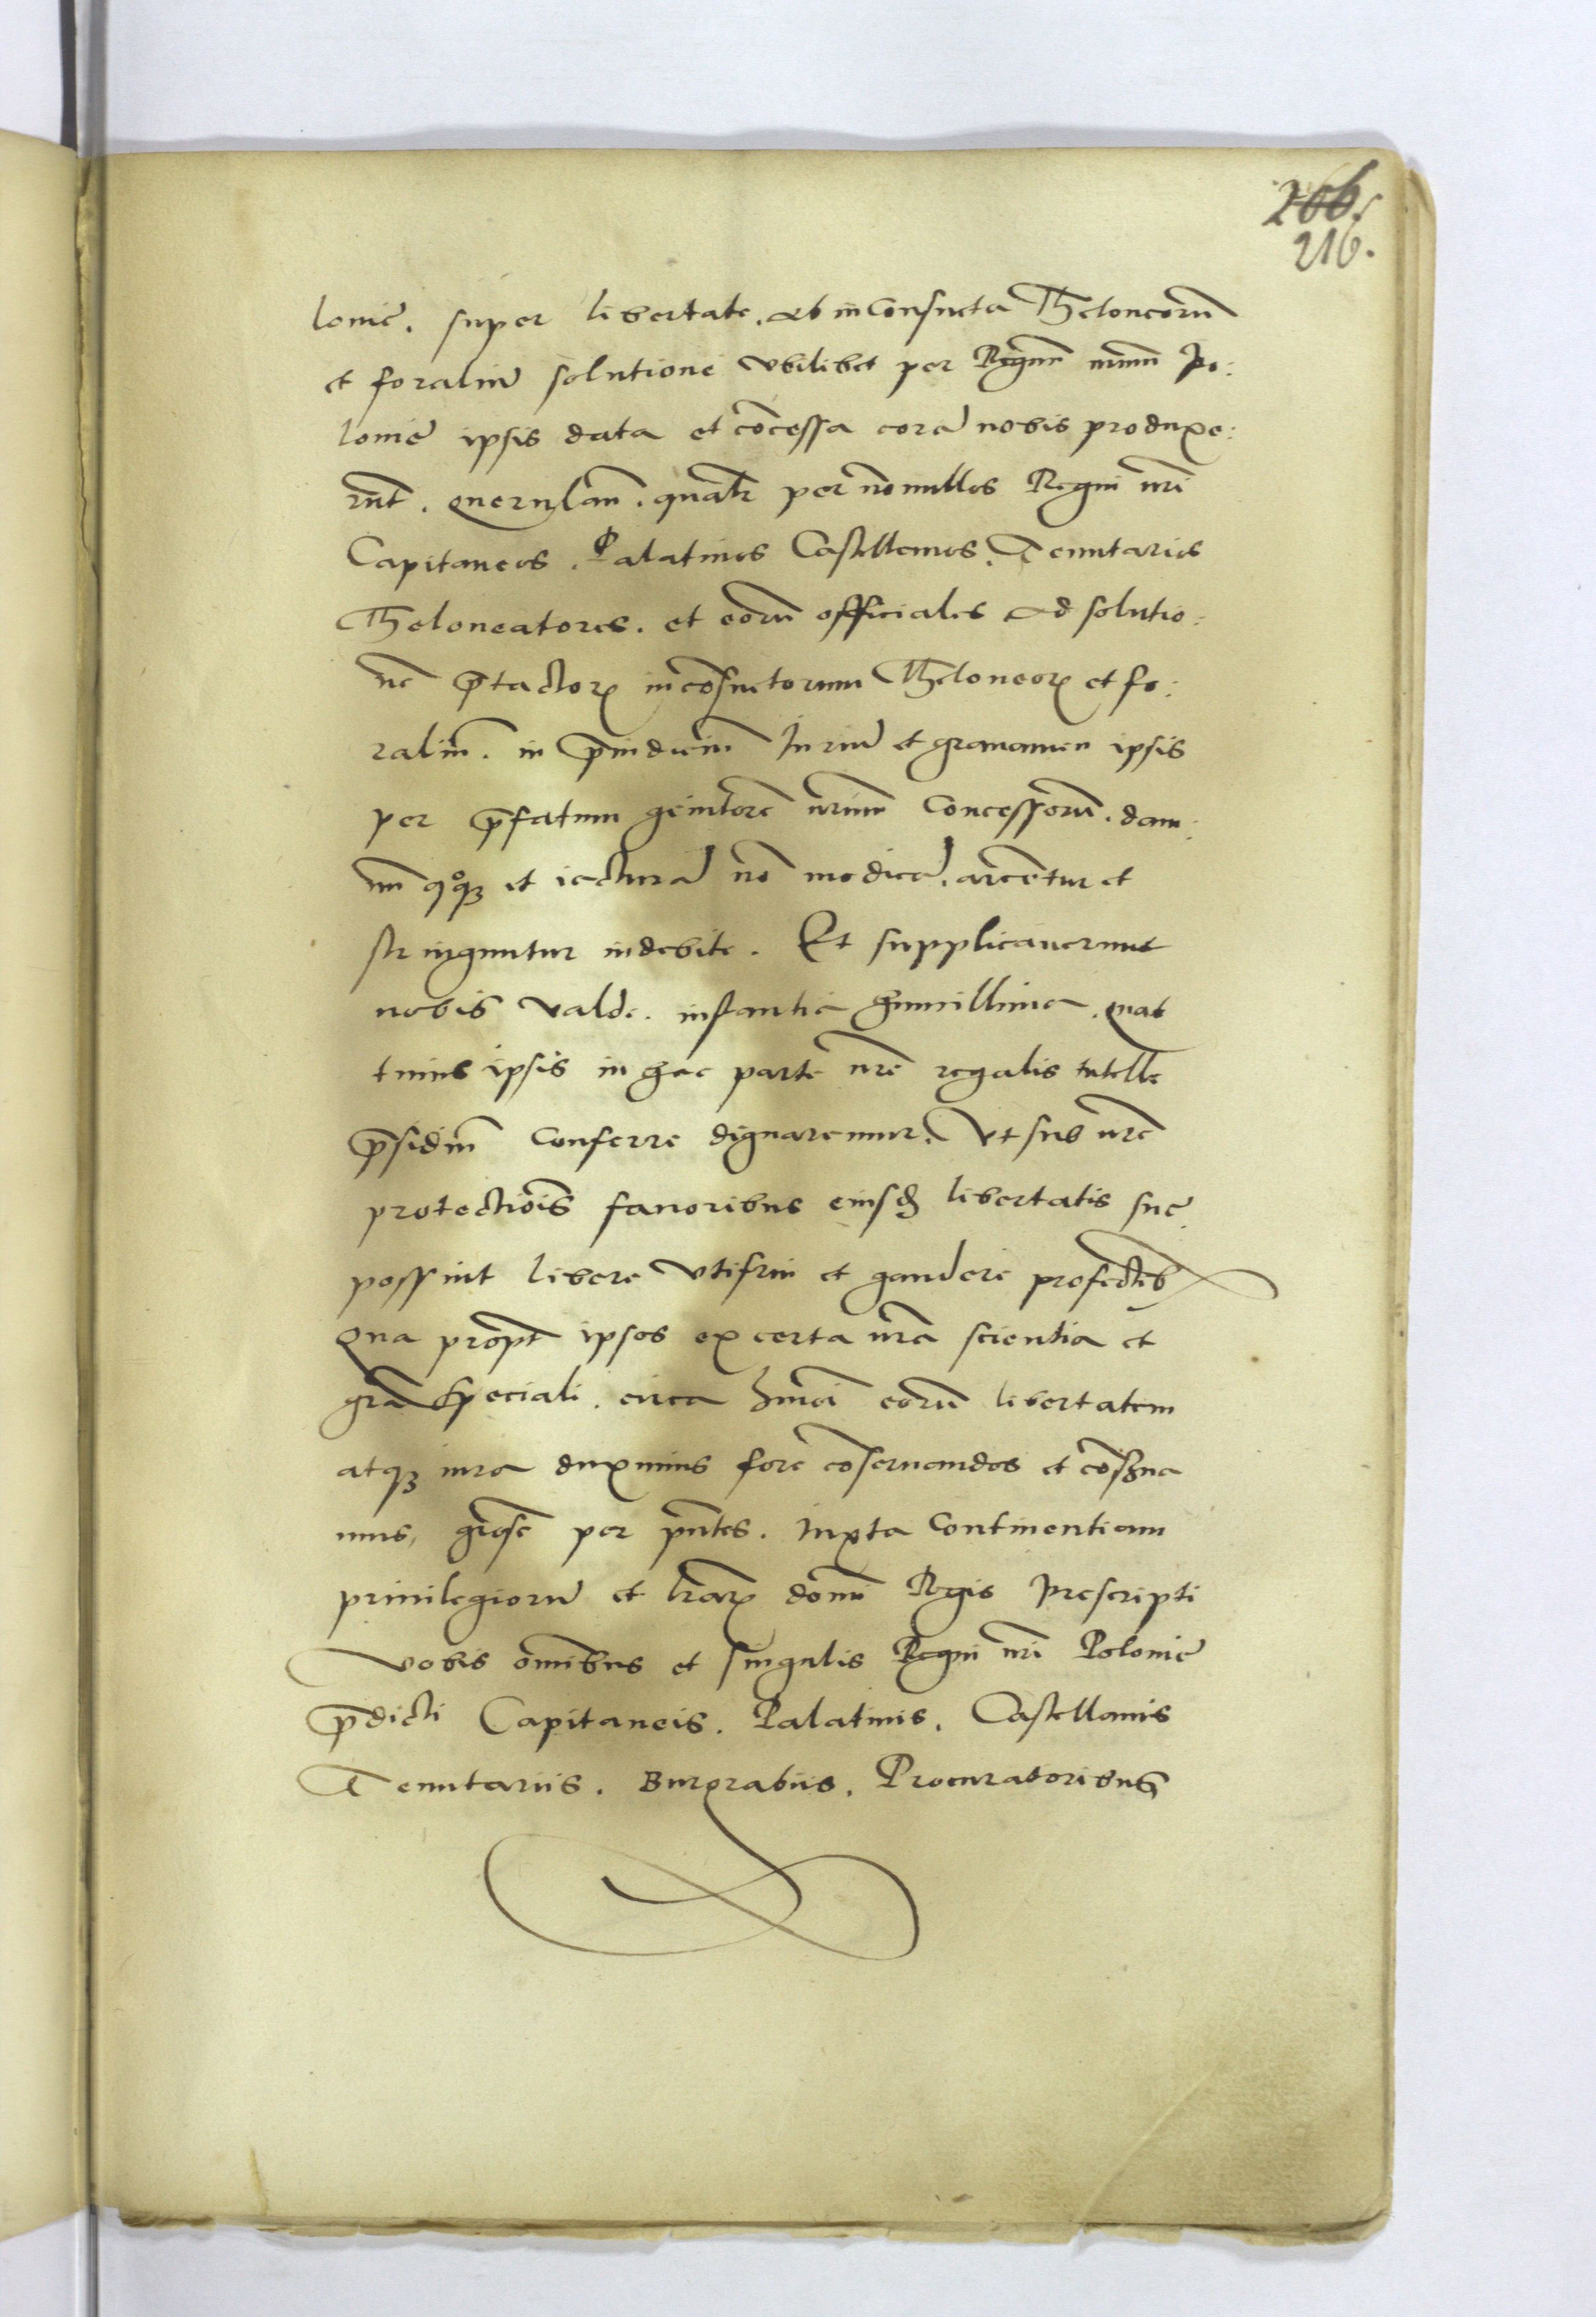 266.
216.
lonie. super libertate. ab in Consueta Theloneorũ
et foraliũ solutione vbilibet per Regnũ nr̃um Po:
lonie ipsis data et cõcessa corã nobis produxe:
rũt. querulam. qualr̃ per nõnullos Regni nr̃i
Capitaneos. Palatinos Castellanos. Tenutarios
Theloneatores. et eorũ officiales ad solutio:
nẽ p̃tactorꝝ incõsuetorum Theloneorꝝ et fo:
raliũ. in p̃iudiciũ Juriũ et grauamen ipsis
per p̃fatum genitorẽ nr̃um Concessorũ. dam:
nũ qoqꝫ et iacturã nõ modicã. arcẽtur et
stringuntur indebite. Et supplicauerunt
nobis valde. instantia humillima. quat
tinus ipsis in hac parte nr̃e regalis tutelle
p̃sidiũ Conferre dignaremur. Vt sub nr̃e
protectiõis fauoribus eiusd̃ libertatis sue
possint libere vti frui et gaudere profectib
Qua propt̃ ipsos ex certa nr̃a scientia et
gr̃a speciali. circa hm̃oi eorũ libertatem
atqꝫ iura duximus fore cõseruandos et cõserua
mus, gr̃ose per pñtes. Iuxta Continentiam
priuilegiorũ et lr̃arꝝ domĩ Regis Prescripti
Vobis omĩbus et singulis Regni nr̃i Polonie
p̃dicti Capitaneis. Palatinis. Castellanis
Tenutariis. Burgrabiis. Procuratoribus